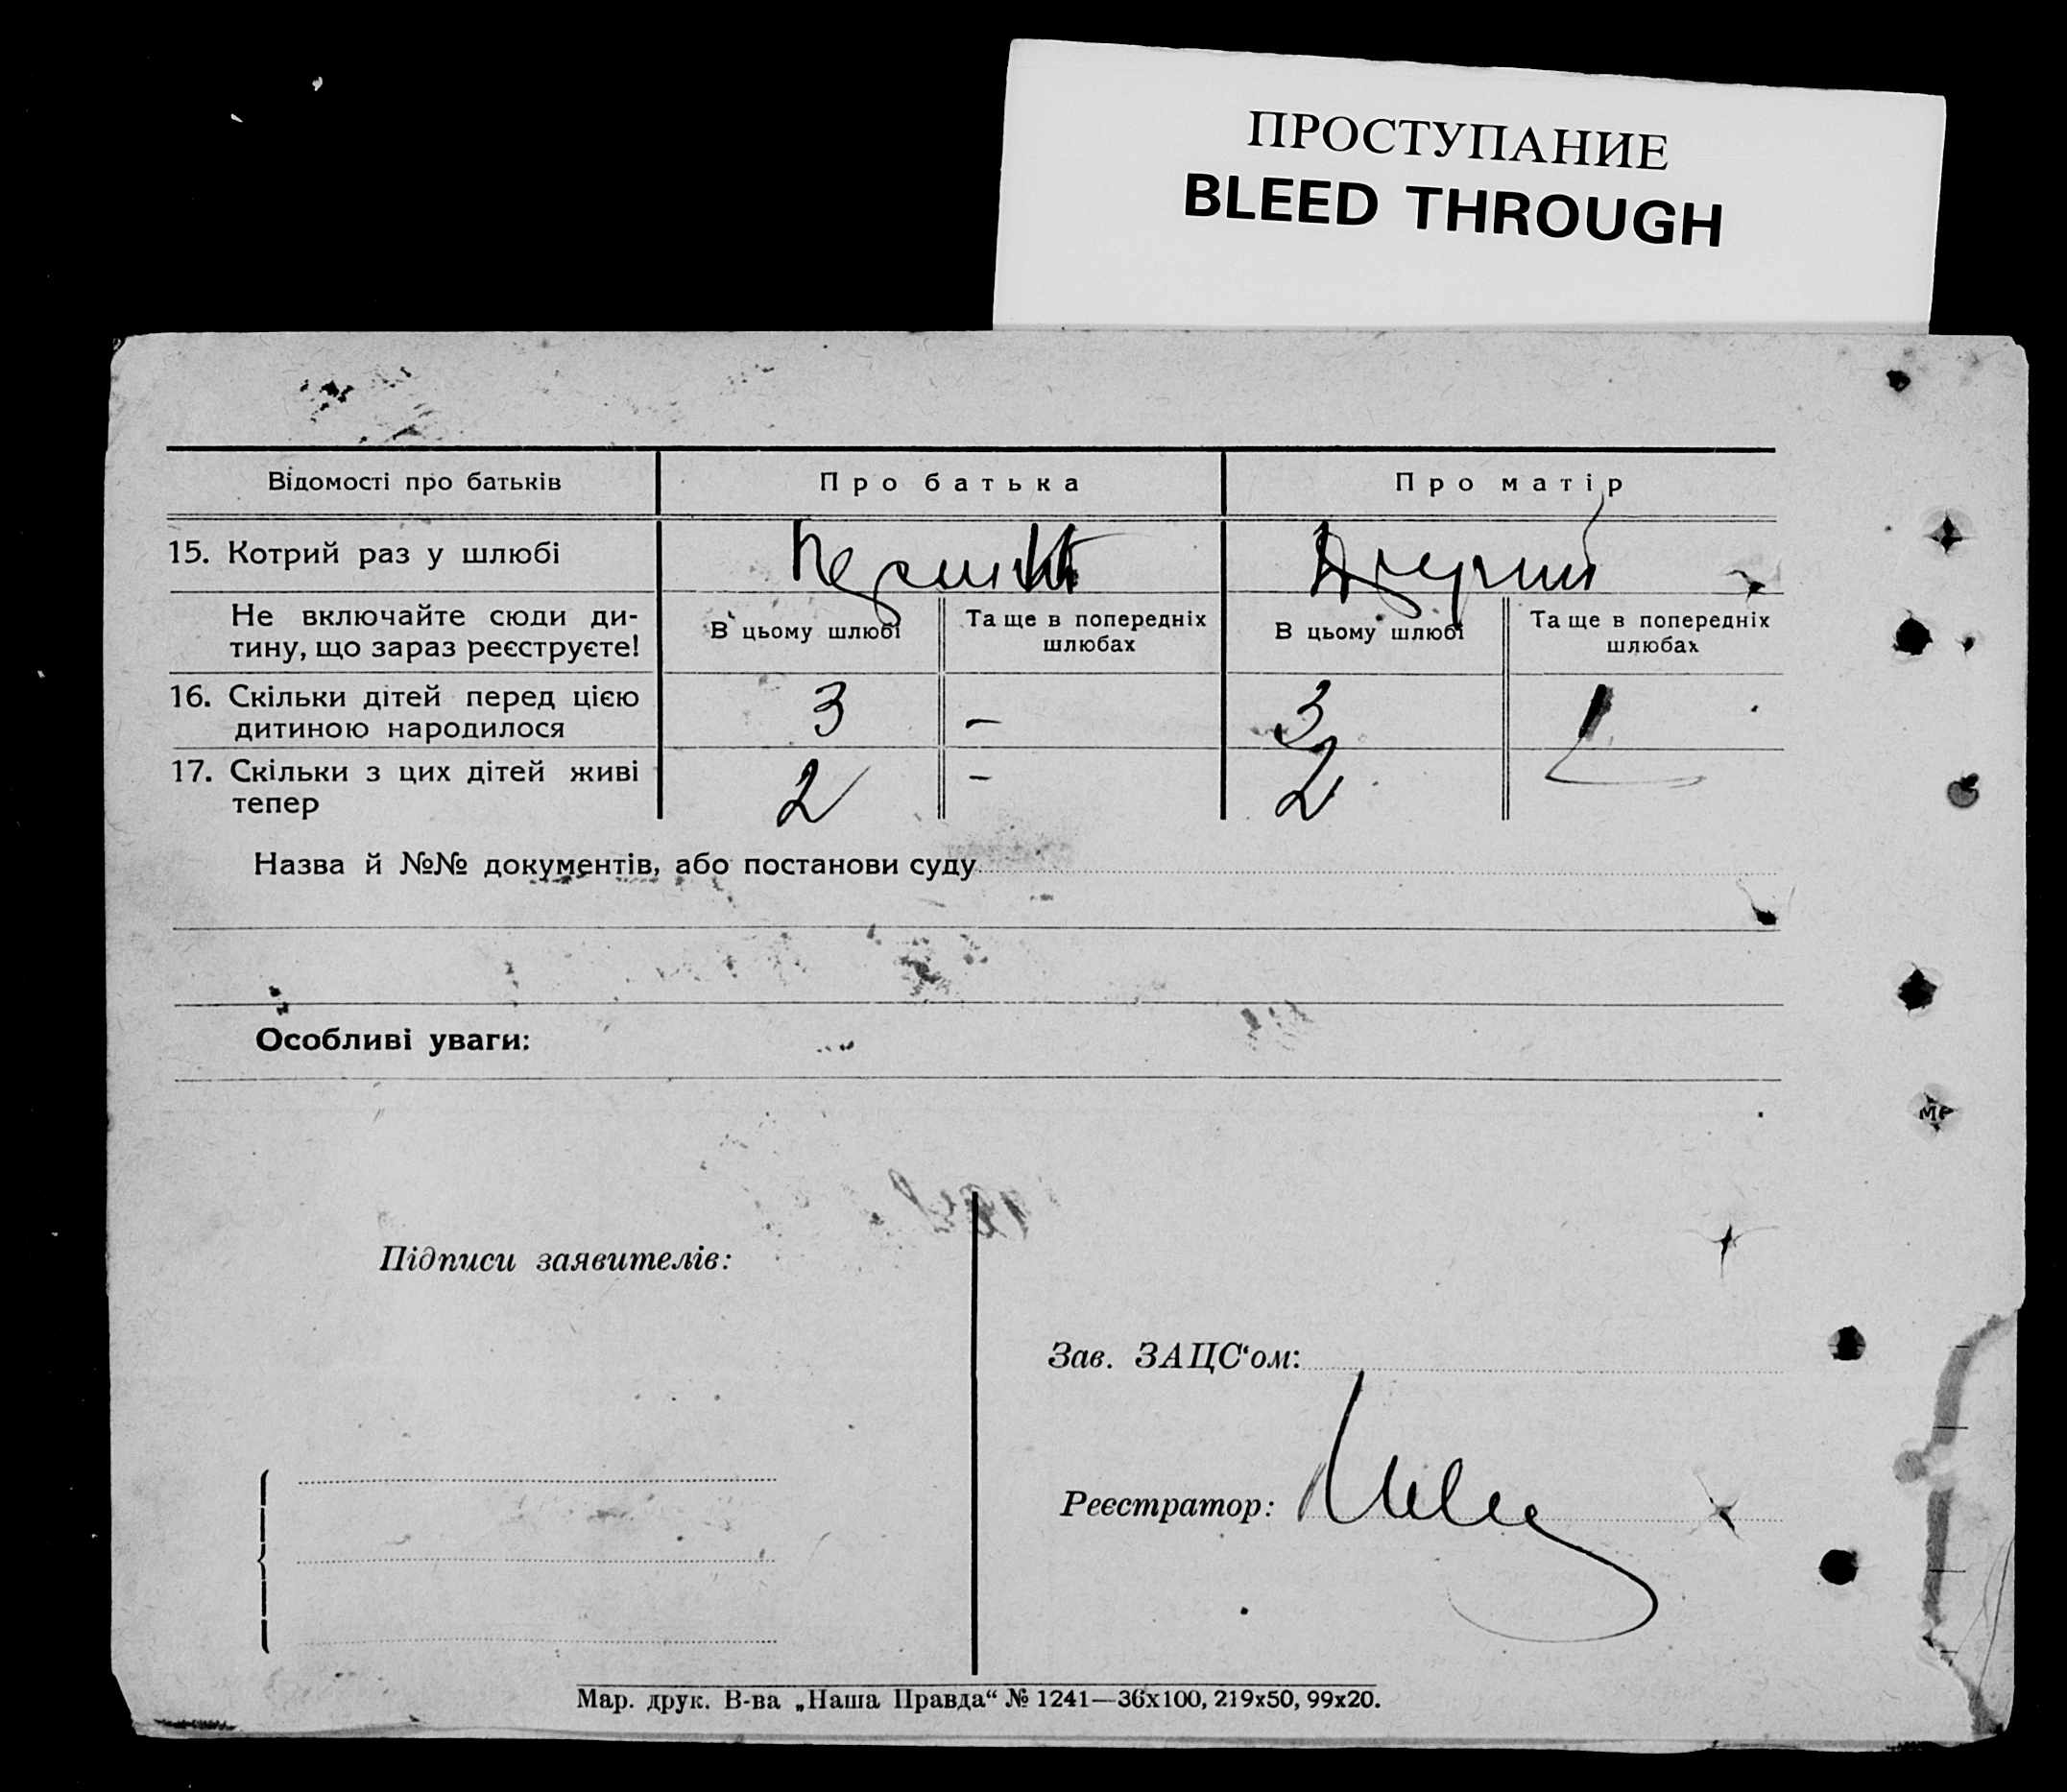 ПРОСТУПАНИЕ
BLEED THROUGH
Відомості про батьків
Про батька
Про матір
15. Котрий раз у шлюбі
Другий
Не включайте сюди ди-
тину, що зараз реєструєте!
В цьому шлюбі
Та ще в попередніх
шлюбах
В цьому шлюбі
Та ще в попередніх
шлюбах
16. Скільки дітей перед цією
дитиною народилося
3
–
3
1
17. Скільки з цих дітей живі
тепер
2
–
2
Назва й №№ документів, або постанови суду
Особливі уваги:
Підписи заявителів:
Зав. ЗАЦС‘ом:
Реєстратор:
Мар. друк. В-ва „Наша Правда“ № 1241—36х100, 219х50, 99х20.